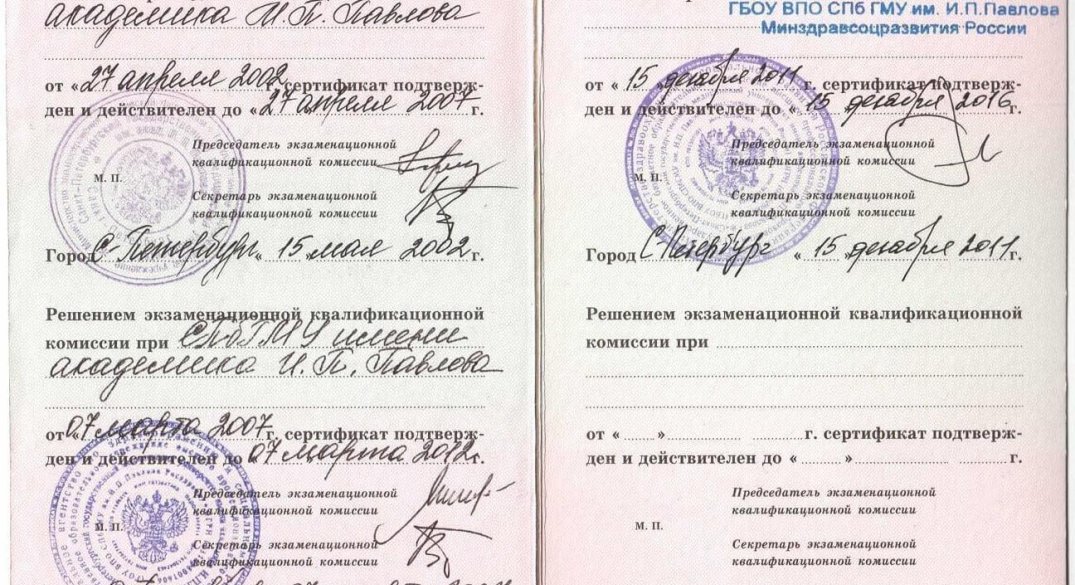 академика И. П. Павлова
от « 27 апреля 2002 г. сертификат подтверж-
ден и действителен до « 27 апреля 2007 г.
Председатель экзаменационной
квалификационной комиссии
М. П.
Секретарь экзаменационной
квалификационной комиссии
Город С-Петербург « 15 » мая 2002 г.
Решением экзаменационной квалификационной
комиссии при СПбГМУ имени
академика И. П. Павлова
от « 07 марта 2007 г. сертификат подтверж-
ден и действителен до « 07 марта 2012 г.
Председатель экзаменационной
квалификационной комиссии
М. П.
Секретарь экзаменационной
квалификационной комиссии
ГБОУ ВПО СПб ГМУ им. И.П.Павлова
Минздравсоцразвития России
от « 15 » декабря 2011 г. сертификат подтверж-
ден и действителен до « 15 » декабря 2016 г.
Председатель экзаменационной
квалификационной комиссии
М. П.
Секретарь экзаменационной
квалификационной комиссии
Город С.Петербург « 15 » декабря 2011 г.
Решением экзаменационной квалификационной
комиссии при
от « » г. сертификат подтверж-
ден и действителен до « » г.
Председатель экзаменационной
квалификационной комиссии
М. П.
Секретарь экзаменационной
квалификационной комиссии